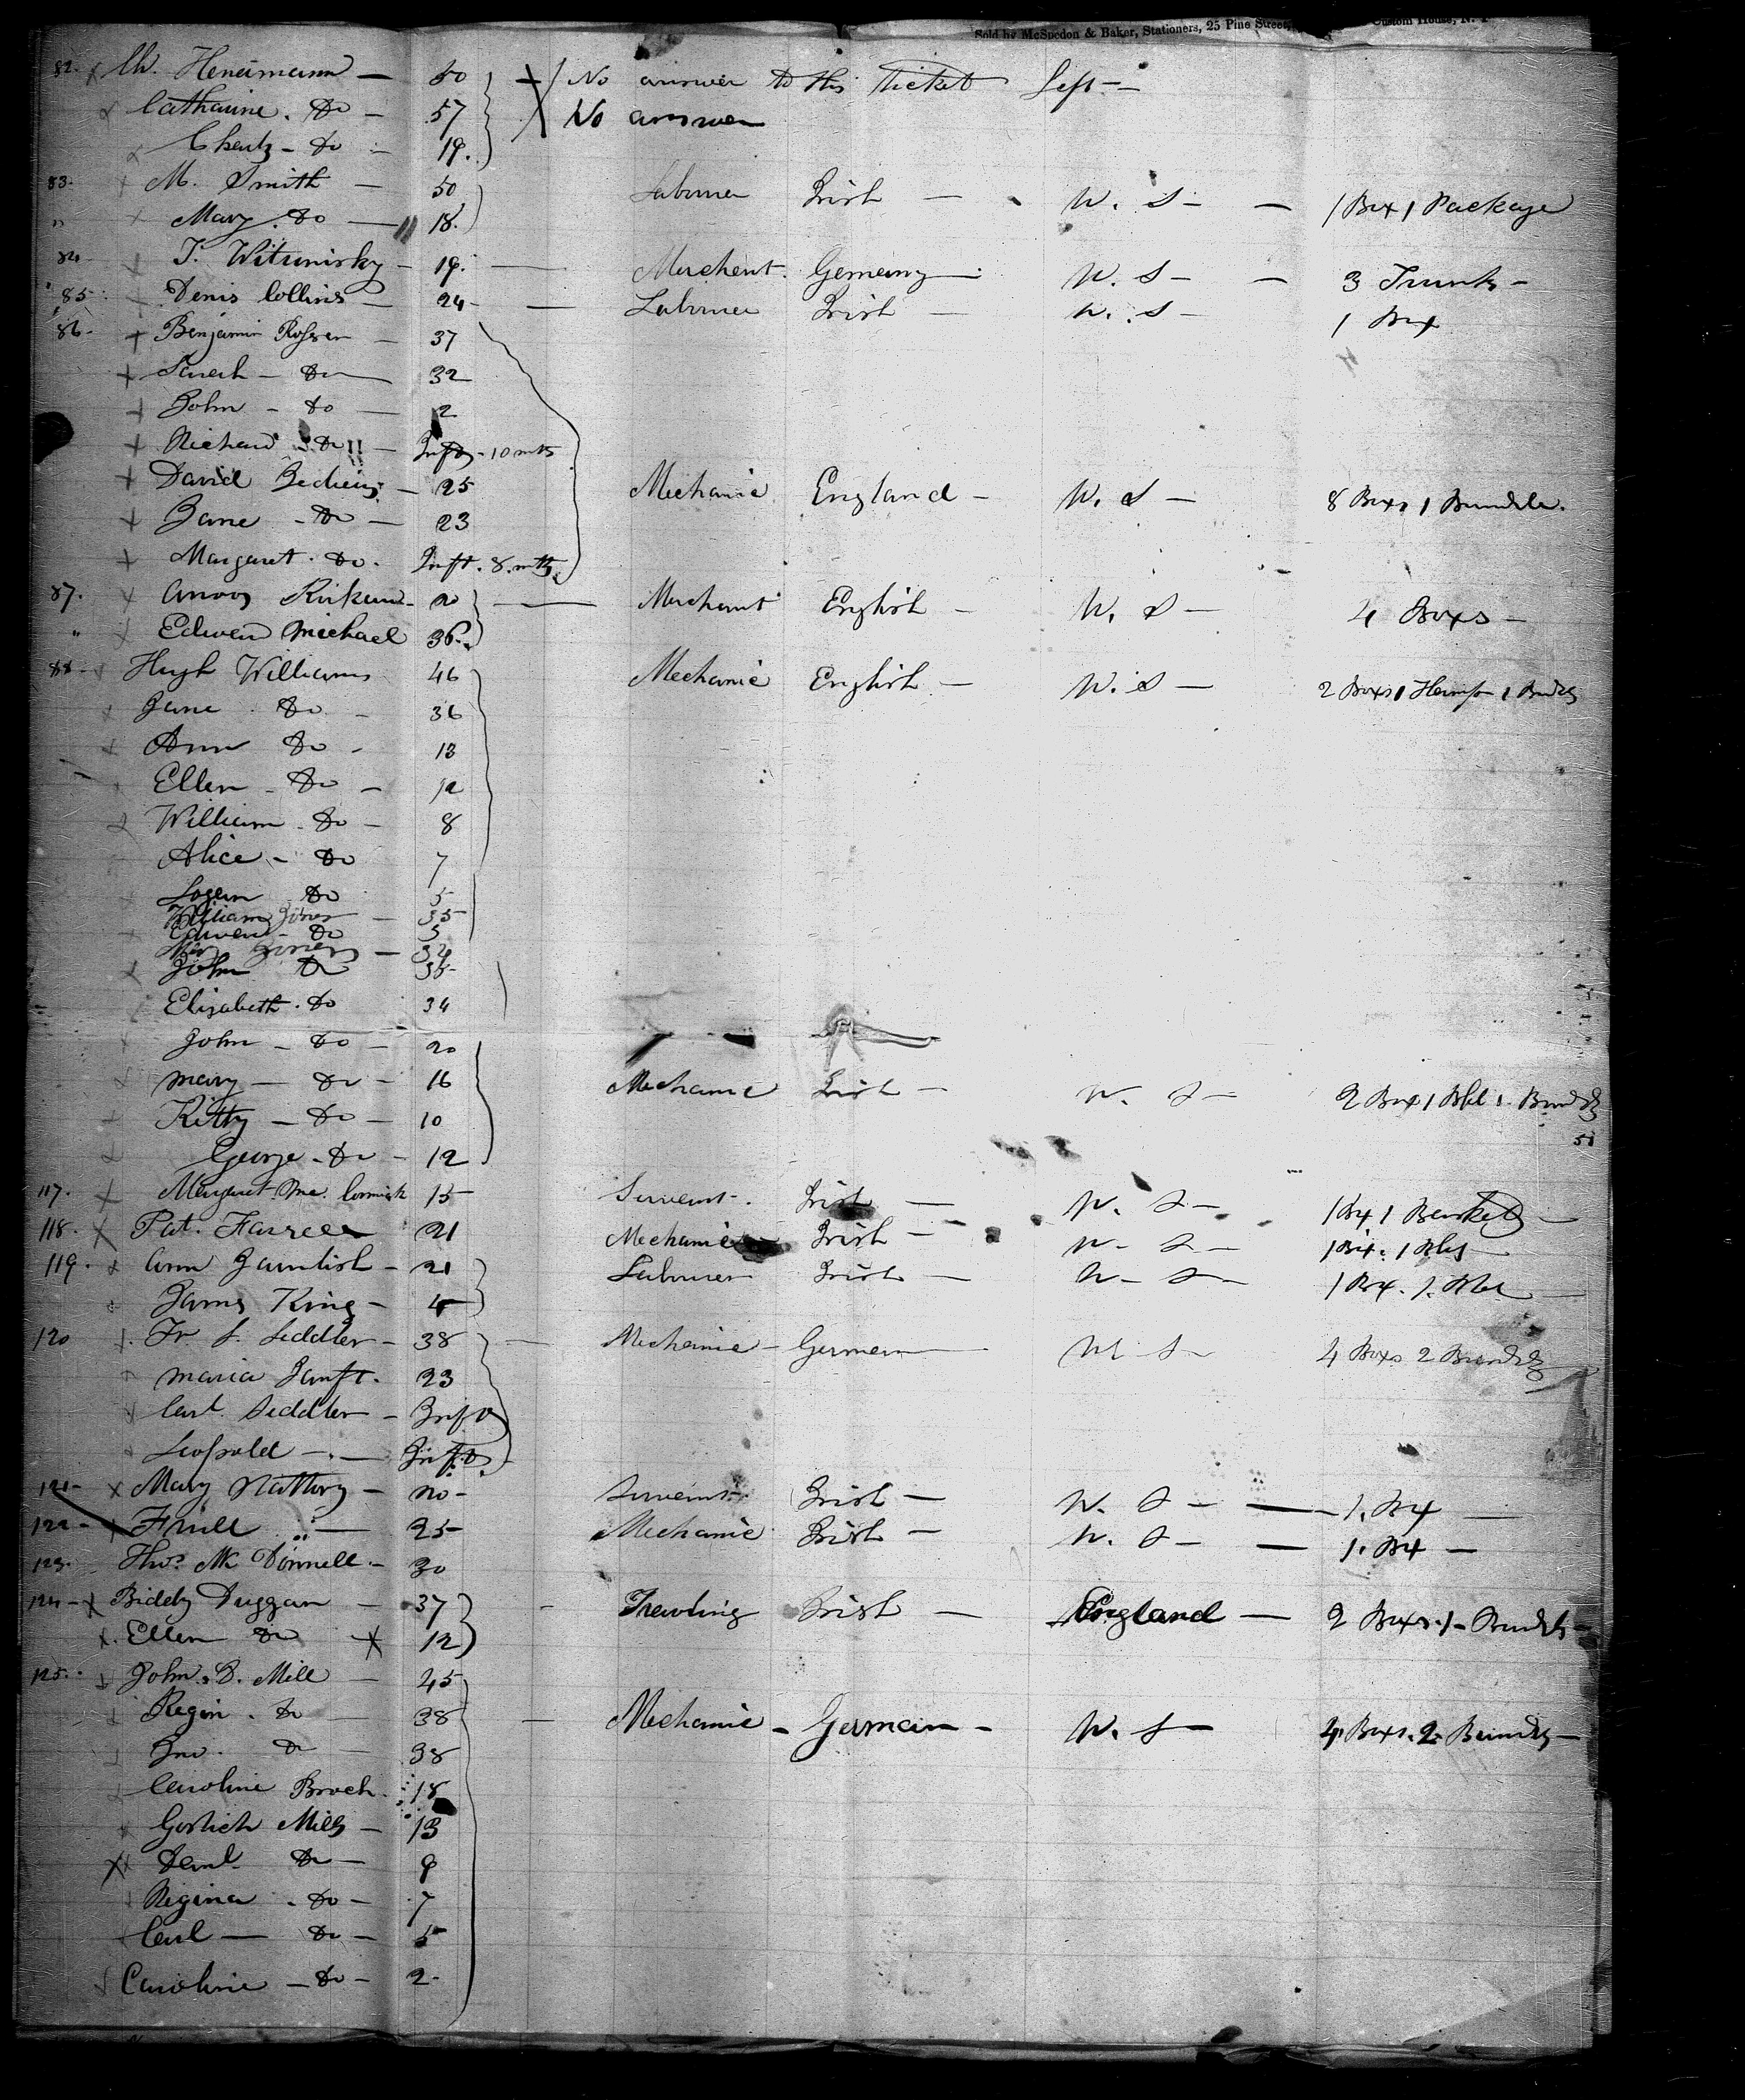 Sold by McSpedon & Baker, Stationers, 25 Pine Street, Custom House, N. Y
82. Ch. Heneimann — 50 No answer to this Ticket Left —
Catharine. Do — 57 No answer
Do — 19.
83. M. Smith — 50 Labourer Irish — W. S — — 1 Box 1 Package
" Mary. Do — 18.
84 J. Witunisky — 19. — Merchant. Germany — W. S — — 3 Trunks —
85 Denis Collins — 24 — Labourer Irish — W. S — 1 Box
86 - Benjamin Rosser — 37
Sarah — Do — 32
John — Do — 2
Richard Do — Inft — 10 mts
David — 25 Mechanic England — W. S — 8 Boxs 1 Bundle.
Jane — Do — 23
Margaret. Do. Inft. 8. mths
87. — 20 — Merchant English — W. S — 4 Boxs —
" Edward Michael 36.
88 - Hugh Williams 46 Mechanic English — W. S — 2 Boxs 1 1
Jane Do — 36
Ann Do — 13
Ellen — Do — 12
William. Do — 8
Alice — Do 7
Do 5
William Jones — 35
Edward — Do 5
Jones — 34
John Do 35
Elizabeth. Do 34
John — Do — 20
Mary — Do — 16 Mechanic Irish — W. S — 2 Box 1 Bbl 1.
Kitty — Do — 10
George — Do — 12
117. Margaret Mc. Cormick 15 Servent. Irish — W. S — 1 Bx 1 Basket —
118. Pat. Farrell 21 Mechanic Irish — W. S — 1 Bx. 1
119. Ann — 21 Labourer Irish — W. S — 1 Bx. 1. —
James King — 4
120 Fr. S. Seddler — 38 — Mechanic — German — W. S — 4 Boxs 2 Bundles
Maria 23
Carl. Seddler — Inft
Leopold — . — Inft
121 - Mary Slattery — 20 — Servent. Irish — W. S — — 1. Bx —
122 - " — 25 Mechanic Irish — W. S — — 1. Bx —
123. Thos. Mc Donnell. — 30
124 - Biddy Duggan — 37 — Traveling Irish — England — 2 Boxs. 1 — Bundle —
Ellen Do 12
125. John. D. Mill — 45
Regin. Do — 38 — Mechanic — German — W. S — 4 Boxs. 2 Bundles —
Jno. Do — 38
Caroline Broch. 18
Mills — 13
Do — 9
Regina. Do — 7
Carl — Do — 5
Caroline — Do — 2.